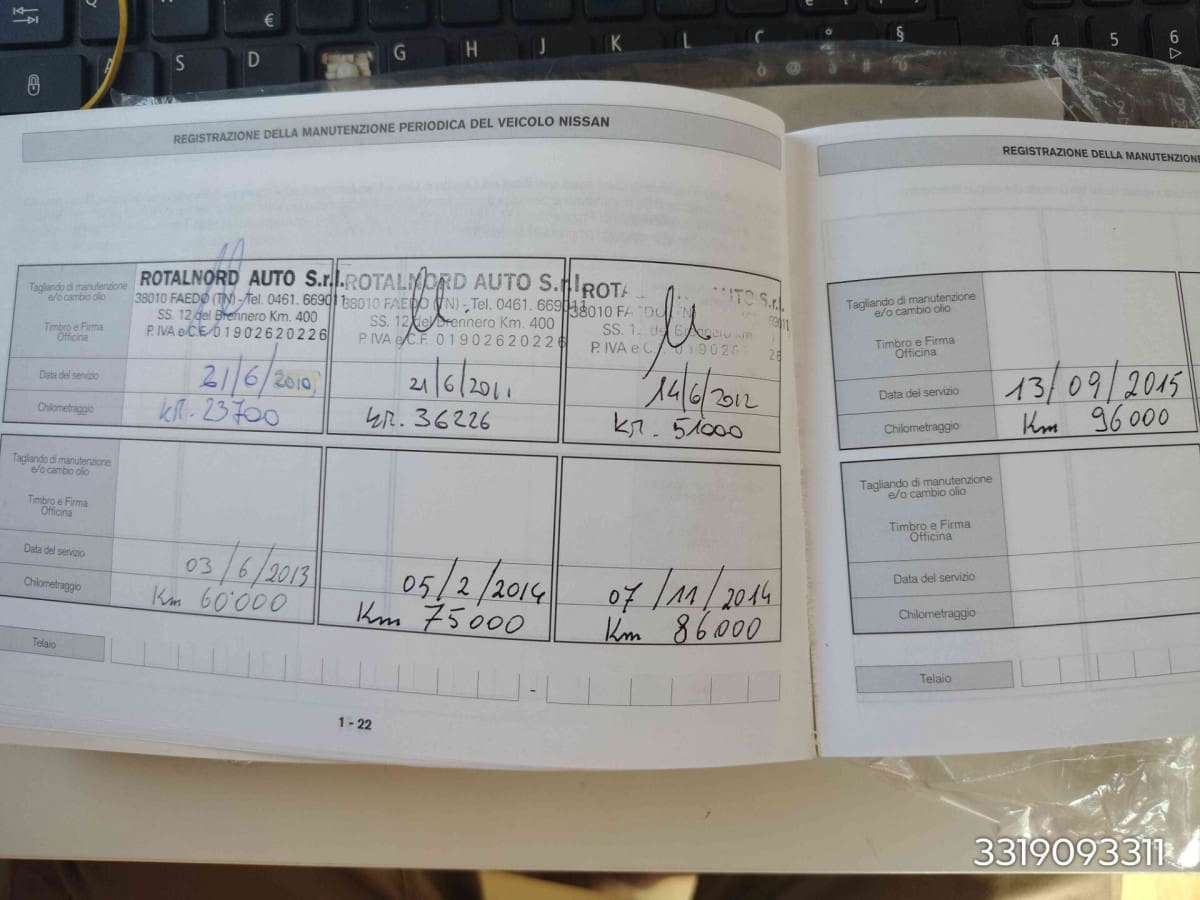 Q € S D G H J K L Ç ° § 4 5 6
REGISTRAZIONE DELLA MANUTENZIONE PERIODICA DEL VEICOLO NISSAN
Tagliando di manutenzione
e/o cambio olio
Timbro e Firma
Officina
Data del servizio
Chilometraggio
ROTALNORD AUTO S.r.l.
38010 FAEDO (TN) - Tel. 0461. 669011
SS. 12 del Brennero Km. 400
P. IVA e C.F. 01902620226
21/6/2010
KM. 23700
ROTALNORD AUTO S.r.l.
38010 FAEDO (TN). - Tel. 0461. 669011
SS. 12 del Brennero Km. 400
P. IVA e C.F. 01902620226
21/6/2011
KM. 36226
14/6/2012
KM. 51000
Tagliando di manutenzione
e/o cambio olio
Timbro e Firma
Officina
Data del servizio
Chilometraggio
03/6/2013
Km 60'000
05/2/2014
Km 75000
07/11/2014
Km 86000
Telaio
-
1 - 22
REGISTRAZIONE DELLA MANUTENZIONE
Tagliando di manutenzione
e/o cambio olio
Timbro e Firma
Officina
Data del servizio
13/09/2015
Chilometraggio
Km 96000
Tagliando di manutenzione
e/o cambio olio
Timbro e Firma
Officina
Data del servizio
Chilometraggio
Telaio
3319093311